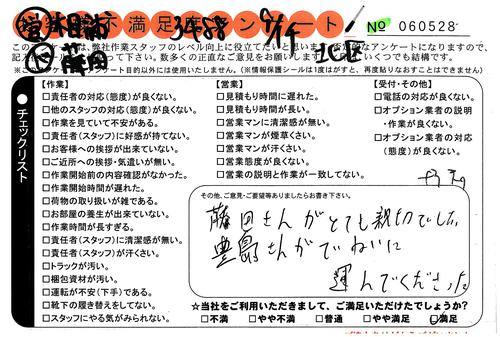 不満足度アンケート
No 060528
このアンケートは、弊社作業スタッフのレベル向上に役立てたいと思います
チェックリスト
【作業】
□責任者の対応(態度)が良くない。
□他のスタッフの対応(態度)が良くない。
□作業を見ていて不安がある。
□責任者(スタッフ)に好感が持てない。
□お客様への挨拶が出来ていない。
□ご近所への挨拶・気遣いが無い。
□作業開始前の内容確認がなかった。
□作業開始時間が遅れた。
□荷物の取り扱いが雑である。
□お部屋の養生が出来ていない。
□作業時間が長すぎる。
□責任者(スタッフ)に清潔感が無い。
□責任者(スタッフ)が汗くさい。
□トラックが汚い。
□梱包資材が汚い。
□運転が不安(下手)である。
□靴下の履き替えをしてない。
□スタッフにやる気がみられない。
【営業】
□見積もり時間に遅れた。
□見積もり時間が長い。
□営業マンに清潔感が無い。
□営業マンが煙草くさい。
□営業マンが汗くさい。
□営業態度が良くない。
□営業の説明と作業が一致してない。
【受付・その他】
□電話の対応が良くない。
□オプション業者の説明
・作業が良くない。
□オプション業者の対応
(態度)が良くない。
その他、ご意見・ご要望等ありましたらお書き下さい。
藤田さんがとても親切でした
豊島さんがていねいに
運んでくださった
☆当社をご利用いただきまして、ご満足いただけたでしょうか?
□不満 □やや不満 □普通 □やや満足 □満足